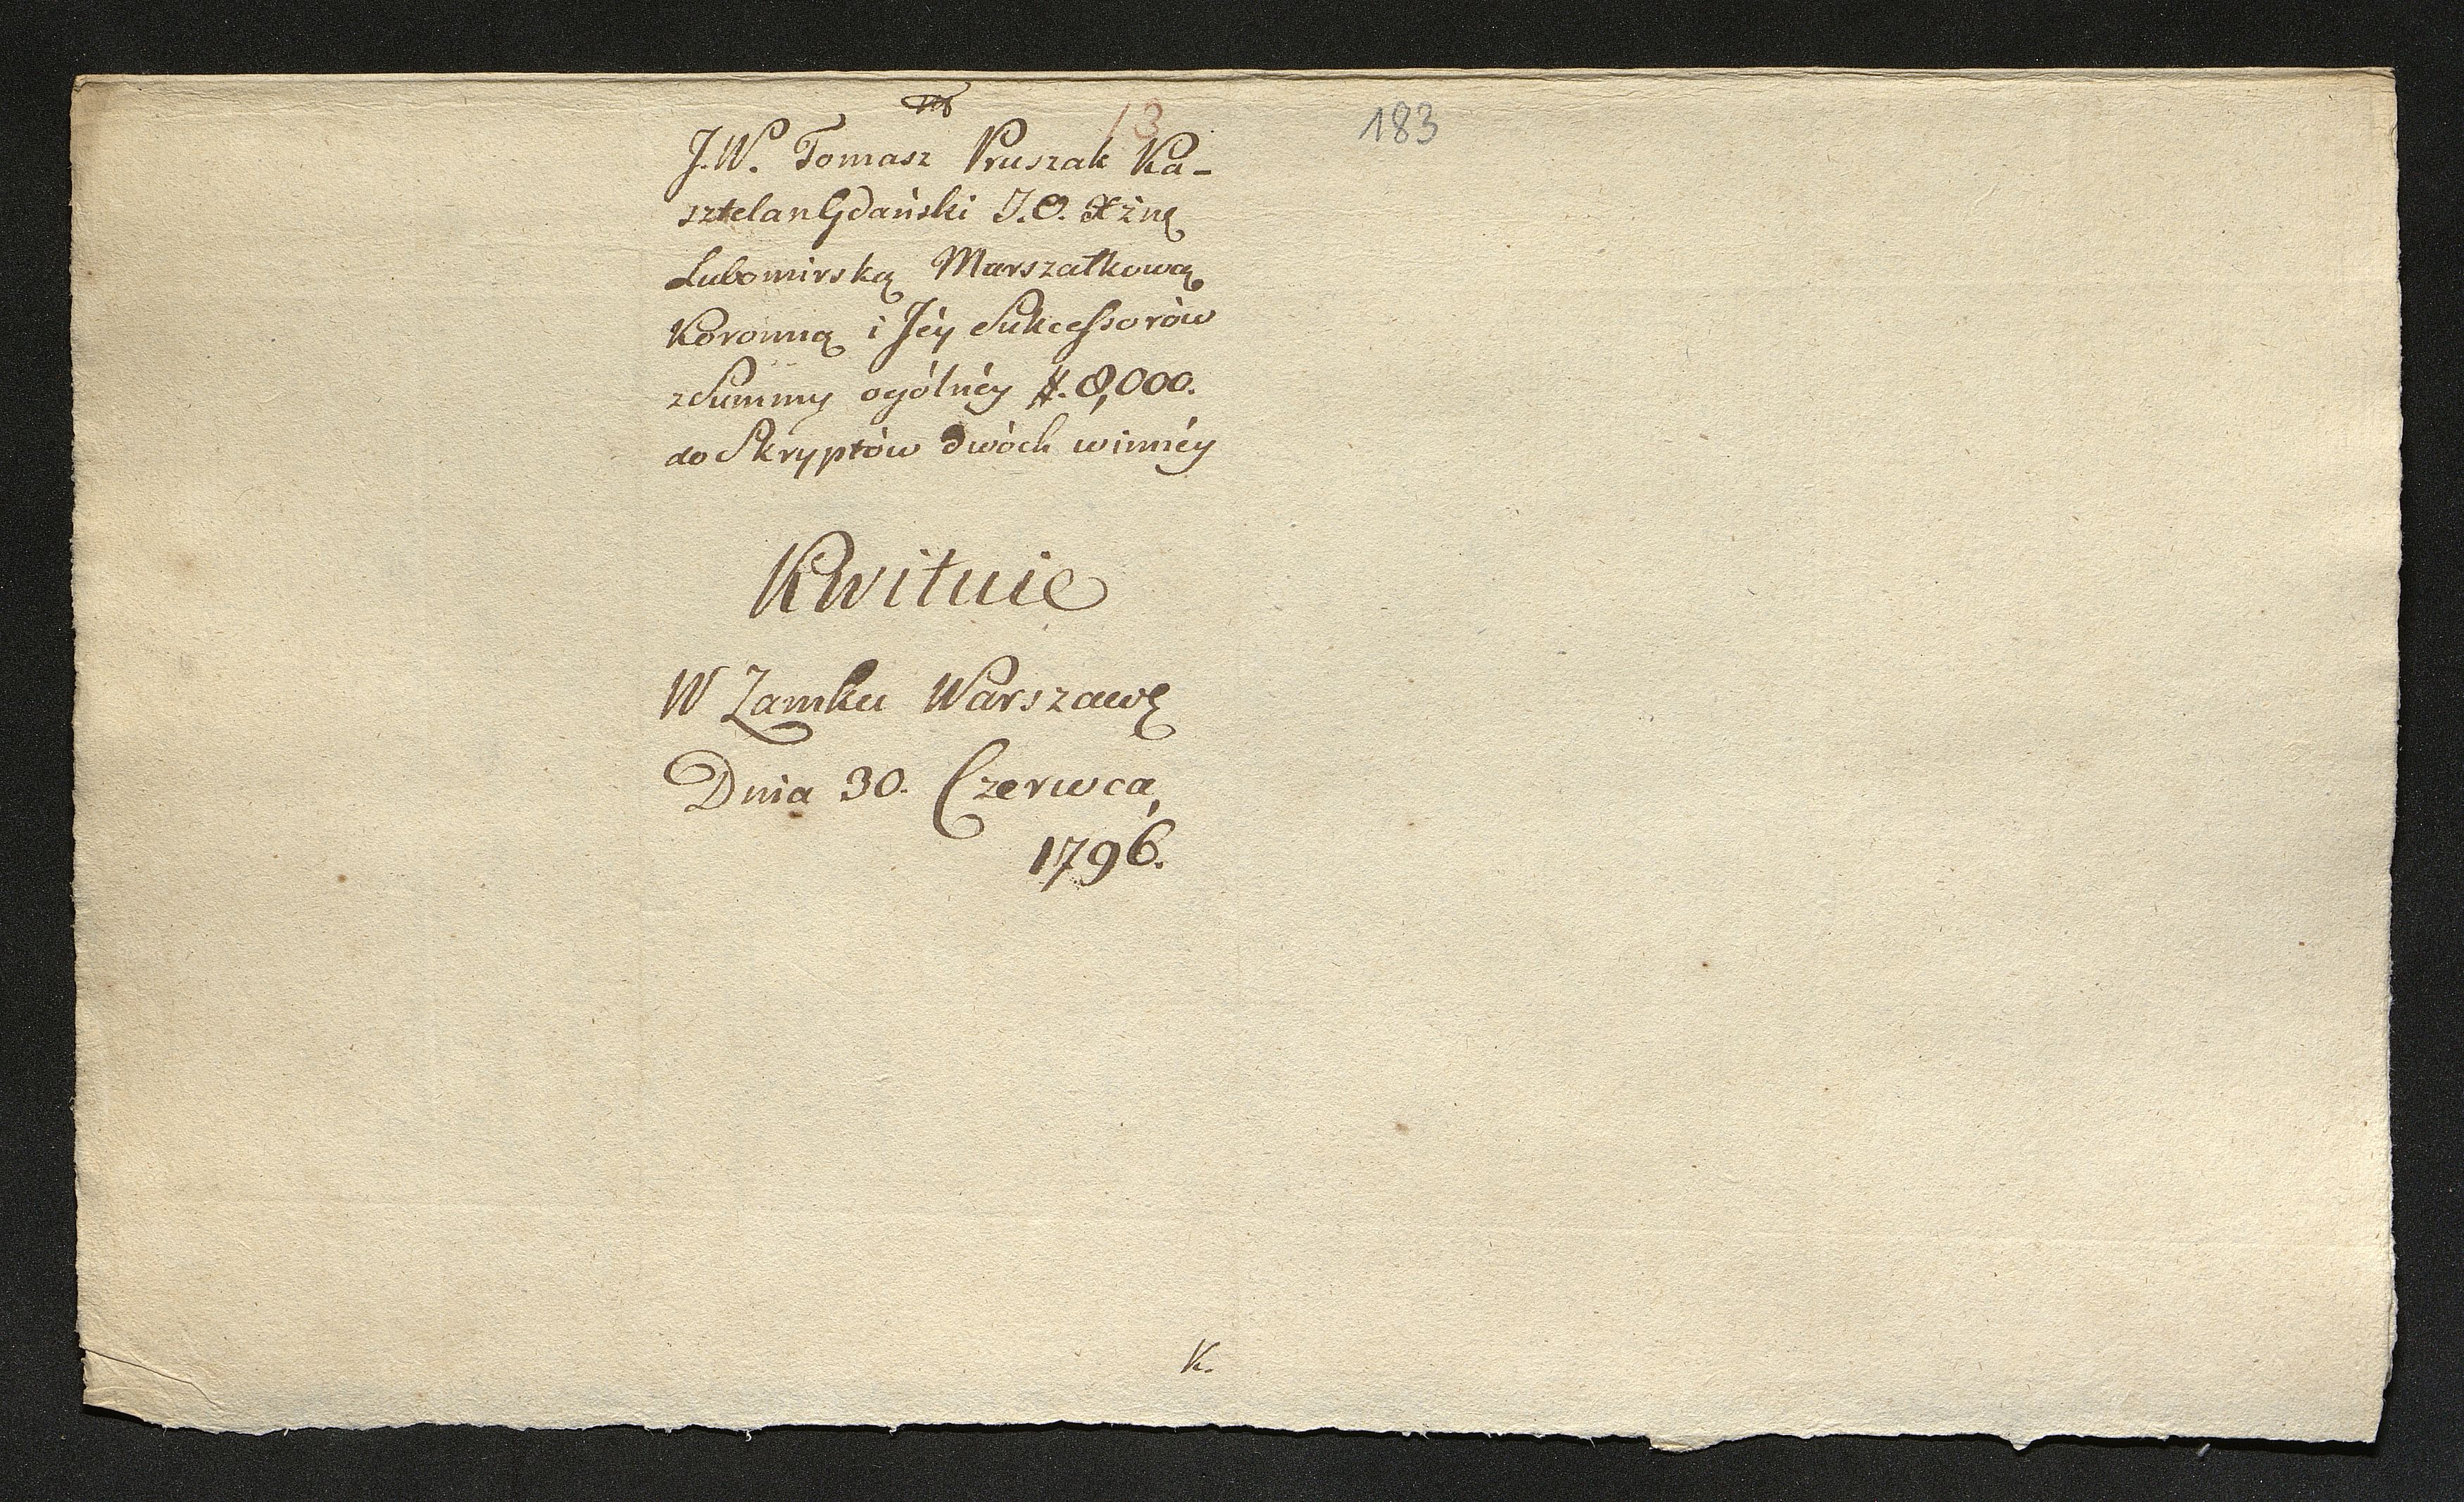 13
183
J.W. Tomasz Pruszak Ka-
sztelan Gdański J.O. Xżnę
Lubomirską Marszałkową
Koronną i Jéy Sukcessorów
z Summy ogólnéy #. 8,000.
do Skryptów dwóch winnéy
Kwituie
W Zamku Warszawę
Dnia 30. Czerwca,
1796.
K.